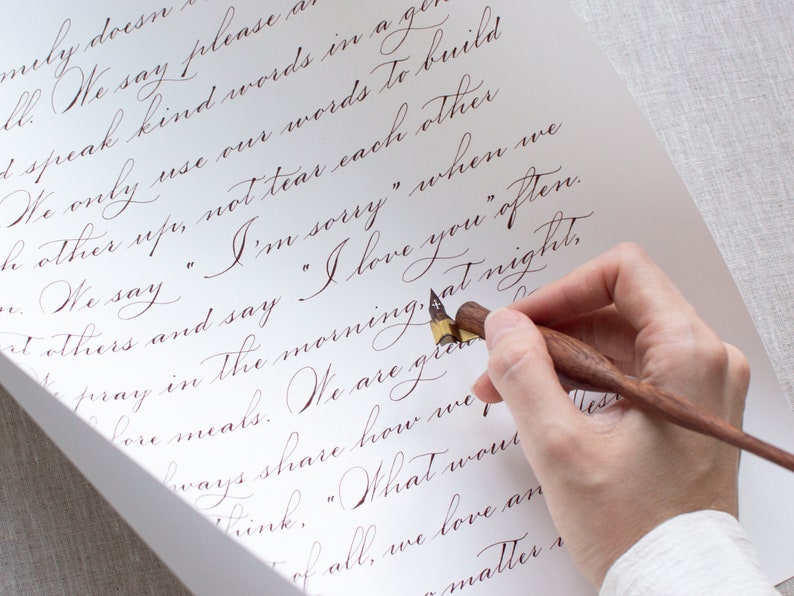 family doesn
all. We say please an
d speak kind words in a gen
We only use our words to build
h other up, not tear each other
n. We say "I'm sorry" when we
others and say "I love you" often.
pray in the morning, at night,
fore meals. We are
ways share how we
think, "What wou
of all, we love an
o matter